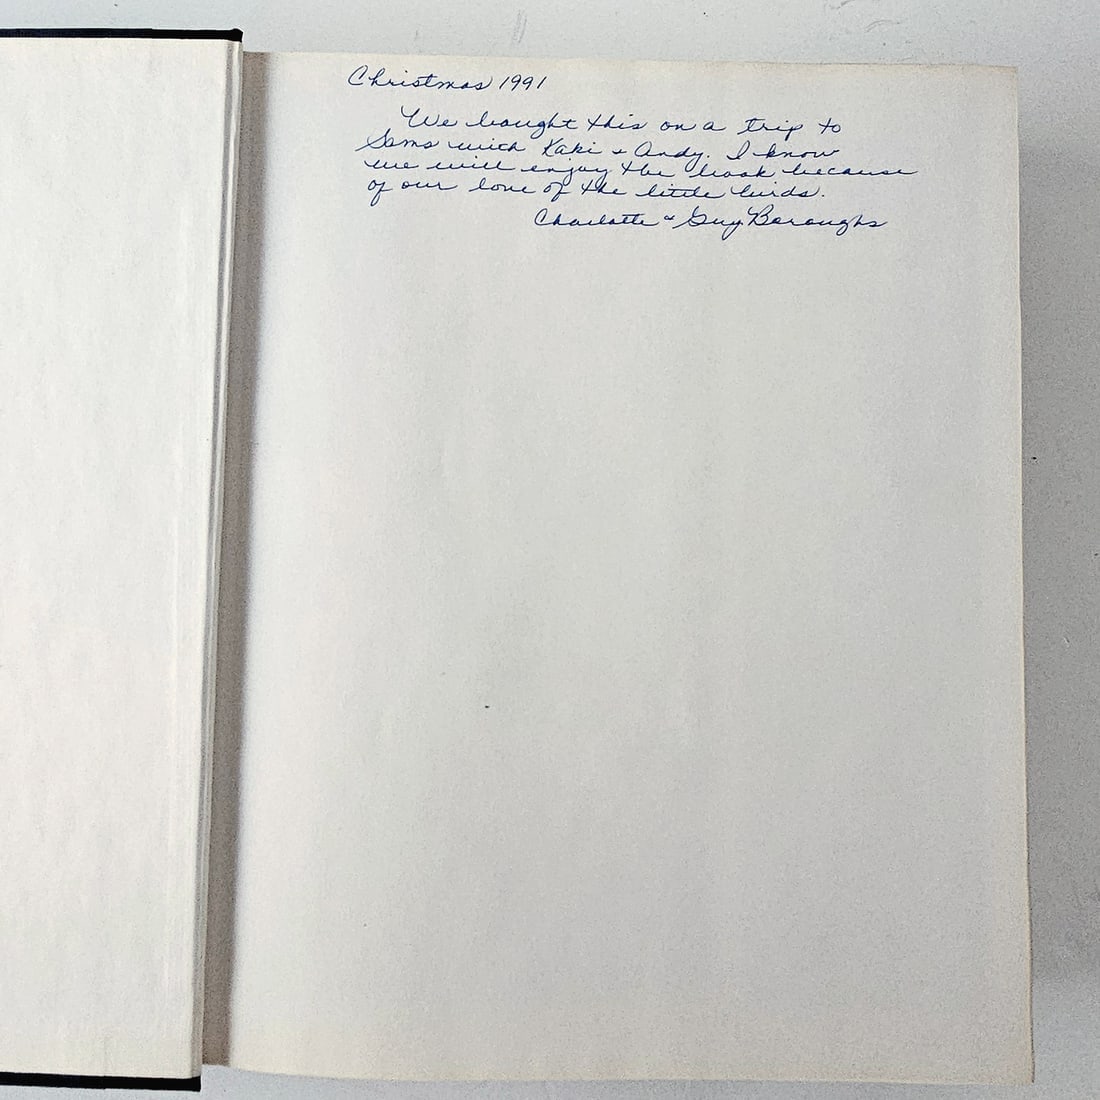 Christmas 1991
We bought this on a trip to
Sams with Kaki & Andy. I know
we will enjoy the book because
of our love of the little birds.
Charlotte & Guy Boroughs